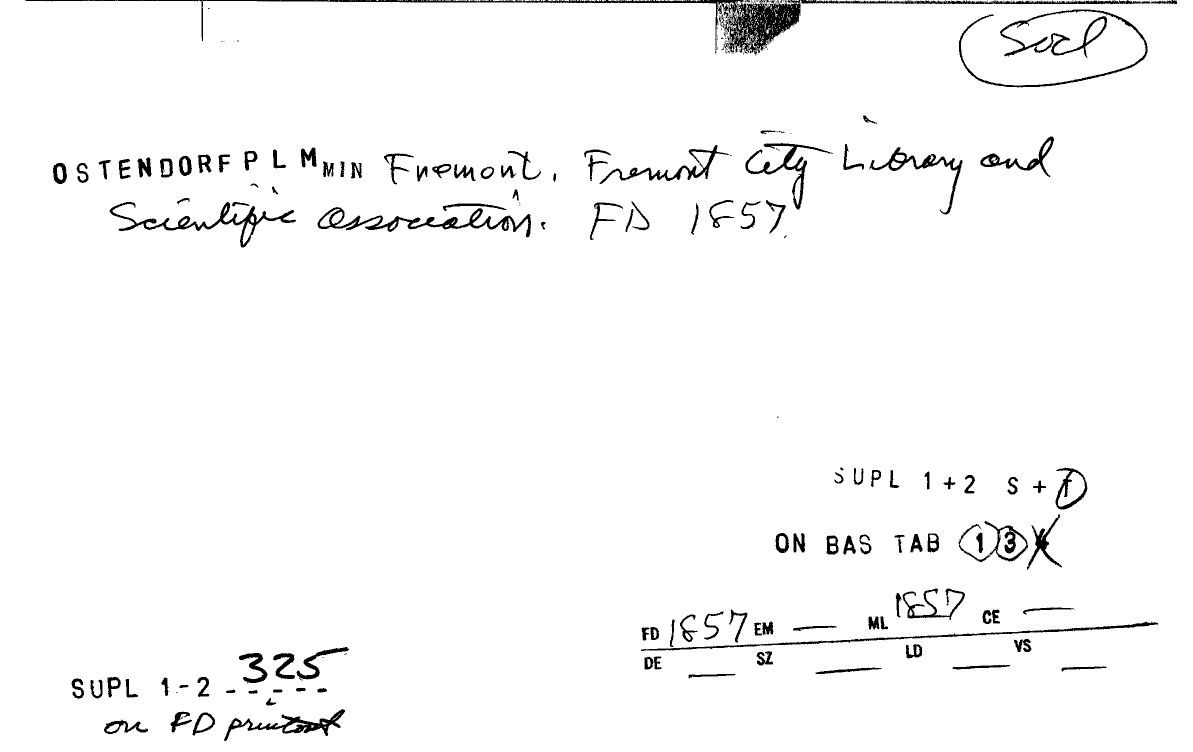 Socl
OSTENDORF P L M MIN Fremont. Fremont City Library and
Scientific Association. FD 1857
SUPL 1+2 S + F
ON BAS TAB 1 3
FD 1857 EM — ML 1857 CE —
DE — SZ — LD — VS —
SUPL 1-2 325
on FD printout